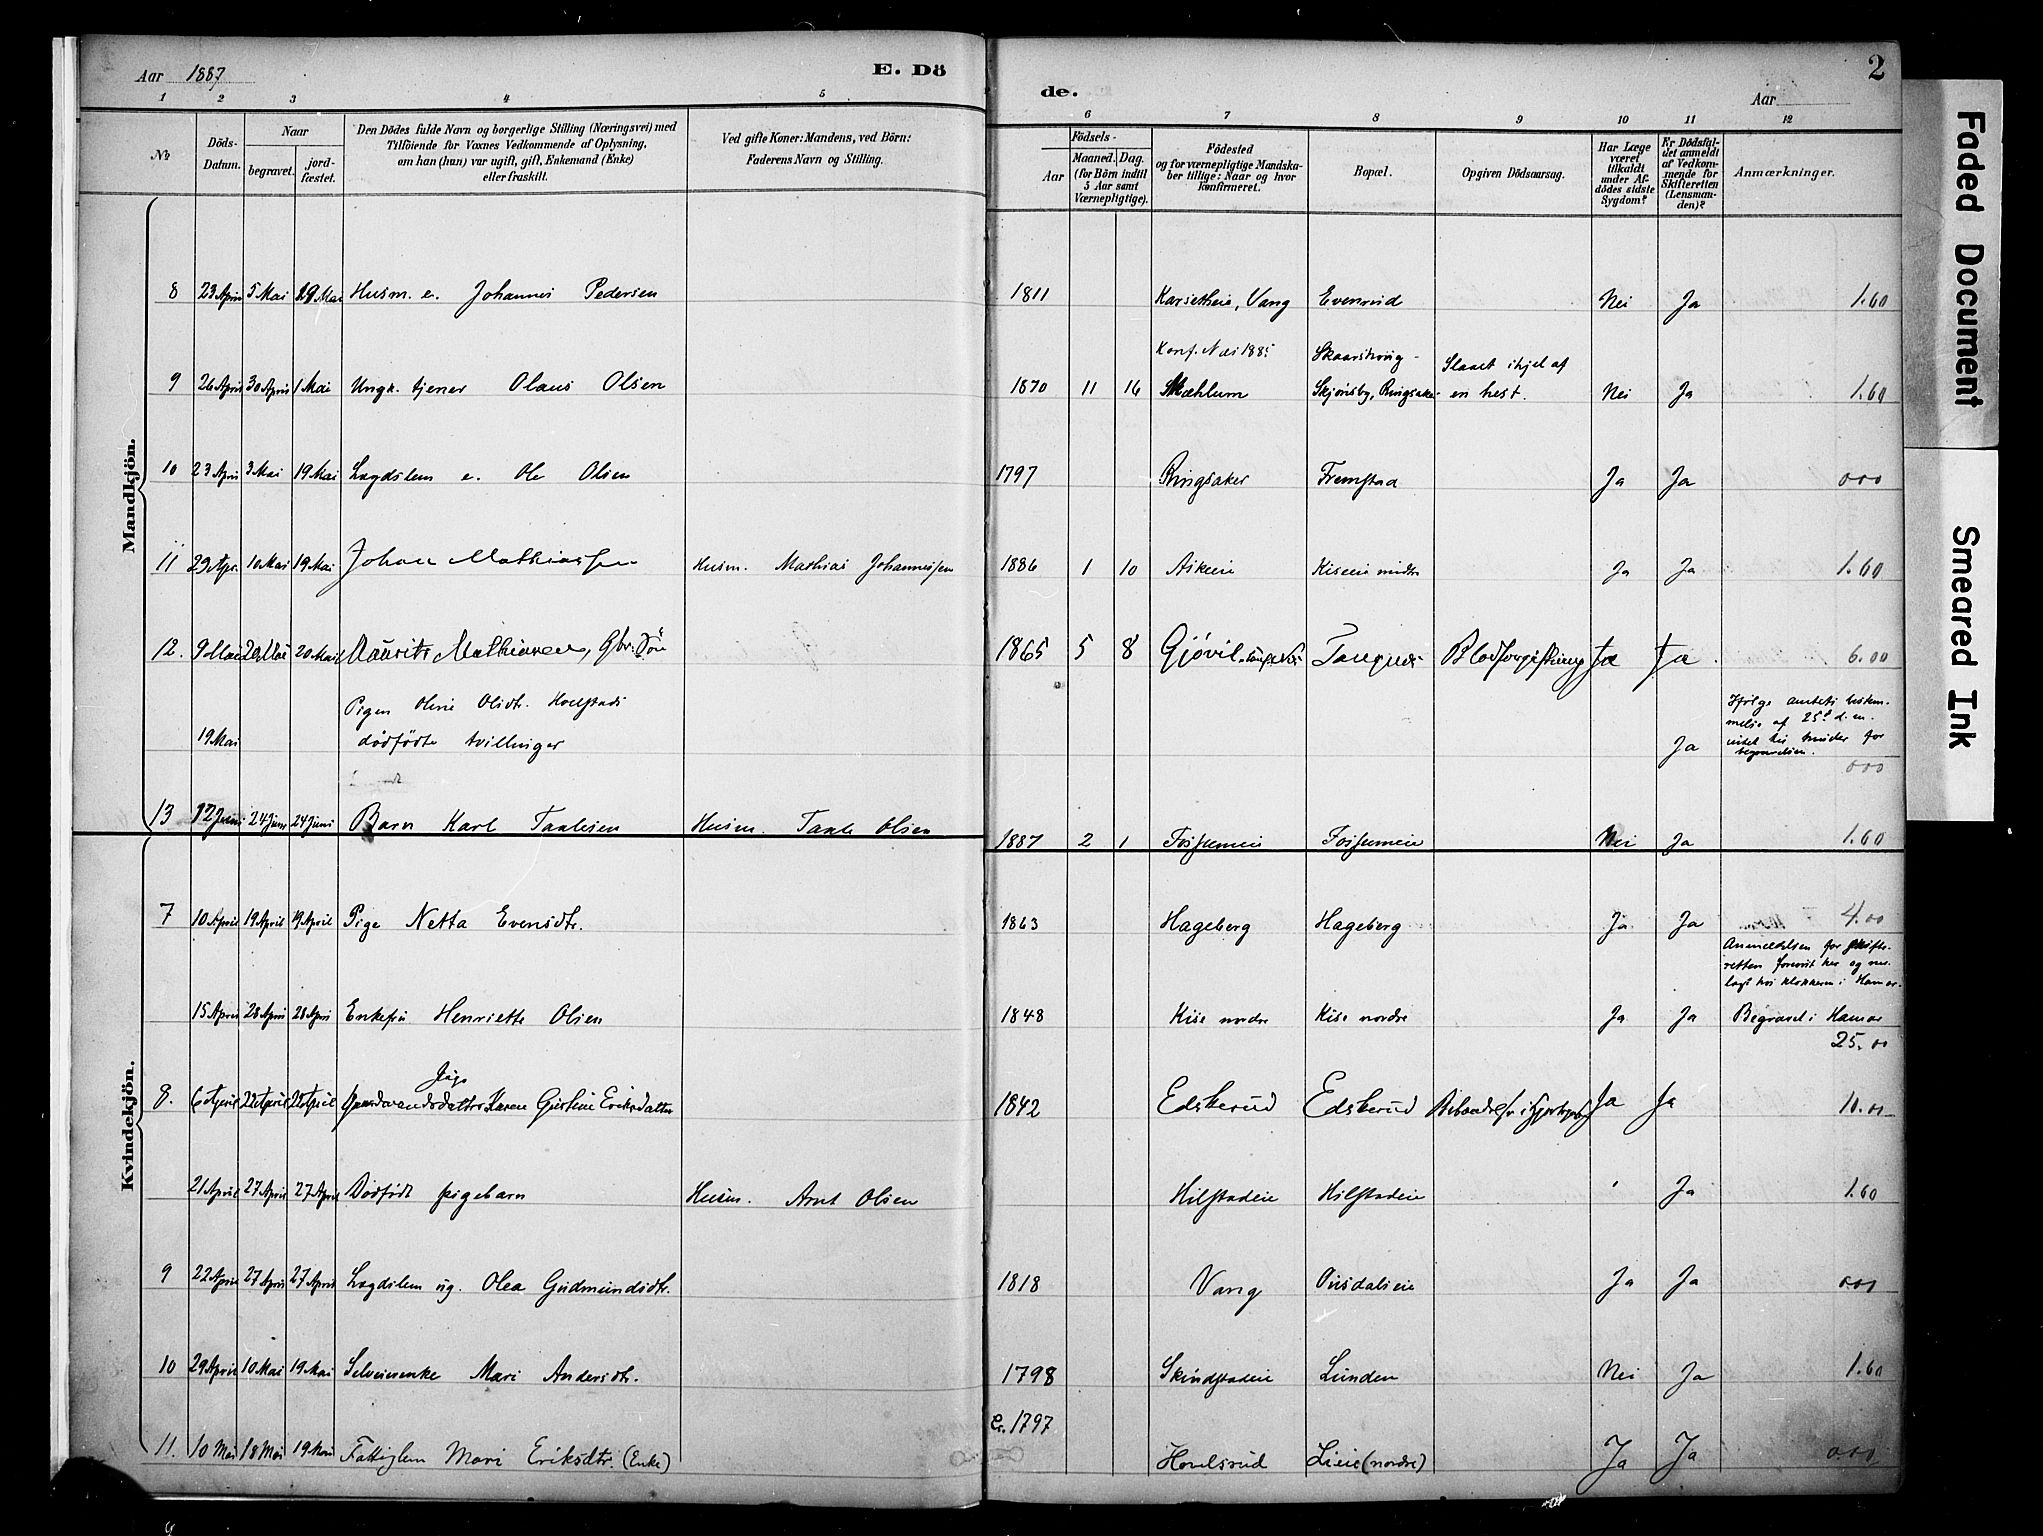 Aar 1887
E. Dö
de.
2
Aar
1 2 3 4 5 6 7 8 9 10 11 12
No
Döds-Datum.
Naar
begravet.
jord-fæstet.
Den Dödes fulde Navn og borgerlige Stilling (Næringsvei) med
Tilföiende for Voxnes Vedkommende af Oplysning,
om han (hun) var ugift, gift, Enkemand (Enke)
eller fraskilt.
Ved gifte Koner: Mandens, ved Börn:
Faderens Navn og Stilling.
Födsels-
Aar
Maaned. Dag.
(for Börn indtil
5 Aar samt
Værnepligtige).
Födested
og for værnepligtige Mandska-
ber tillige: Naar og hvor
konfirmeret.
Bopæl.
Opgiven Dödsaarsag.
Har Læge
været
tilkaldt
under Af-
dödes sidste
Sygdom?
Er Dödsfal-
det anmeldt
af Vedkom-
mende for
Skifteretten
(Lensman-
den)?
Anmærkninger.
Mandkjön.
8 23 April 5 Mai 19 Mai Husm. e. Johannes Pedersen 1811 Karsetheie, Vang Evenrud Nei Ja 1.60
Konf. Næs 1885 Skaarshoug - Slaaet ihjel af
9 26 April 30 April 1 Mai Ungk. tjener Olaus Olsen 1870 11 16 Mæhlum Skjønsby, Ringsaker en hest. Nei Ja 1.60
10 23 April 3 Mai 19 Mai Lægdslem e. Ole Olsen 1797 Ringsaker Fremstad Ja Ja 000
11 29 Apr. 10 Mai 19 Mai Johan Mathiassen Husm. Mathias Johannessen 1886 1 10 Askeie Kiseeie midtre Ja Ja 1.60
12. 9 Mai 20 Mai 20 Mai Maurits Mathiasen, Gbr. Søn 1865 5 8 Gjøvik Tangnes Blodforgiftning Ja Ja 6.00
Pigen Oline Olsdtr. Hoelstads
19 Mai dødfødte tvillinger Ja
Ifølge amtets bestem-
melse af 25d d.m.
for
begravelsen.
000
13 12 Juni 24 Juni 24 Juni Barn Karl Taalesen Husm. Taale Olsen 1887 2 1 Fossumeie Fossumeie Nei Ja 1.60
Kvindekjön.
7 10 April 19 April 19 April Pige Netta Evensdtr. 1863 Hageberg Hageberg Ja Ja 4.00
Anmeldelsen for skifte-
retten forevist her og ned-
lagt hos klokkeren i Hamar.
15 April 28 April 28 April Enkefru Henriette Olsen 1848 Kise nordre Kise nordre Ja Ja Begravet i Hamar
25.00
Pige
8. 6 April 28 April 28 April Gaardmandsdatter Karen Gustine Eriksdatter 1842 Edskerud Edskerud Ja Ja 10.00
21 April 27 April 27 April Dødfødt pigebarn Husm. Arnt Olsen Hilstadeie Hilstadeie Ja 1.60
9 22 April 27 April 27 April Lægdslem ug. Olea Gudmundsdtr. 1818 Vang Ousdaleie Ja Ja 000
10 29 April 10 Mai 19 Mai Selveierenke Mari Andersdtr. 1798 Skindstadeie Lunden Nei Ja 1.60
Cr. 1797
11. 10 Mai 18 Mai 19 Mai Fattiglem Mari Eriksdtr. (Enke) Hovelsrud Lieie (nordre) Ja Ja 0.00
Faded Document
Smeared Ink